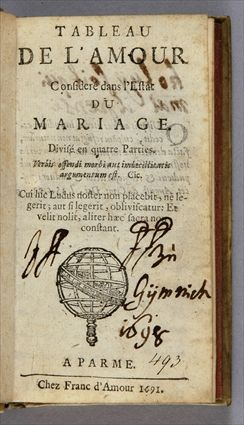 TABLEAU
DE L'AMOUR
Consideré dans l'Estat
DU
MARIAGE
Divisé en quatre Parties.
Verbis offendi morbi aut imbecillitatis
argumentum est. Cic.
Cui hîc Ludus noster non placebit, ne le-
gerit; aut si legerit, obliviscatur: Et
velit nolit, aliter hæc sacra non
constant.
Gÿmnich
1698
A PARME. 493
Chez Franc d'Amour 1691.